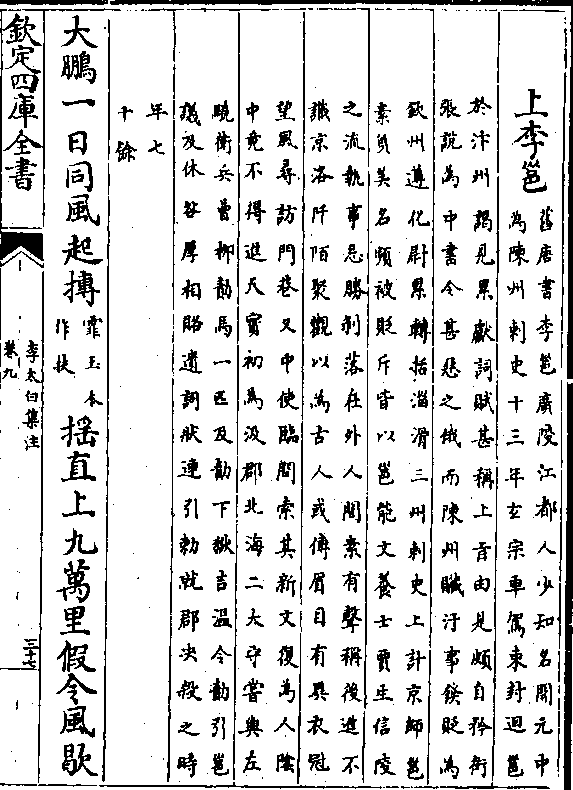 上李邕
舊唐書李邕廣陵江都人少知名開元中
為陳州刺史十三年玄宗車駕東封迴邕
於汴州謁見累獻詞賦甚稱上旨由是頗自矜衒
張說為中書令甚惡之俄而陳州贓汙事發貶為
欽州遵化尉累轉括淄滑三州刺史上計京師邕
素負美名頻被貶斥皆以邕能文養士賈生信陵
之流執事忌勝剝落在外人間素有聲稱後進不
識京洛阡陌聚觀以為古人或傳眉目有異衣冠
望風尋訪門巷又中使臨問索其新文復為人陰
中竟不得進天寶初為汲郡北海二大守嘗與左
驍衛兵曹柳勣馬一匹及勣下獄吉溫令勣引邕
議及休咎厚相賂遺詞狀連引勑就郡決殺之時
年七
十餘
大鵬一日同風起摶
霏玉本
作扶
揺直上九萬里假令風歇
欽定四庫全書
李太白集注
卷九
三十七